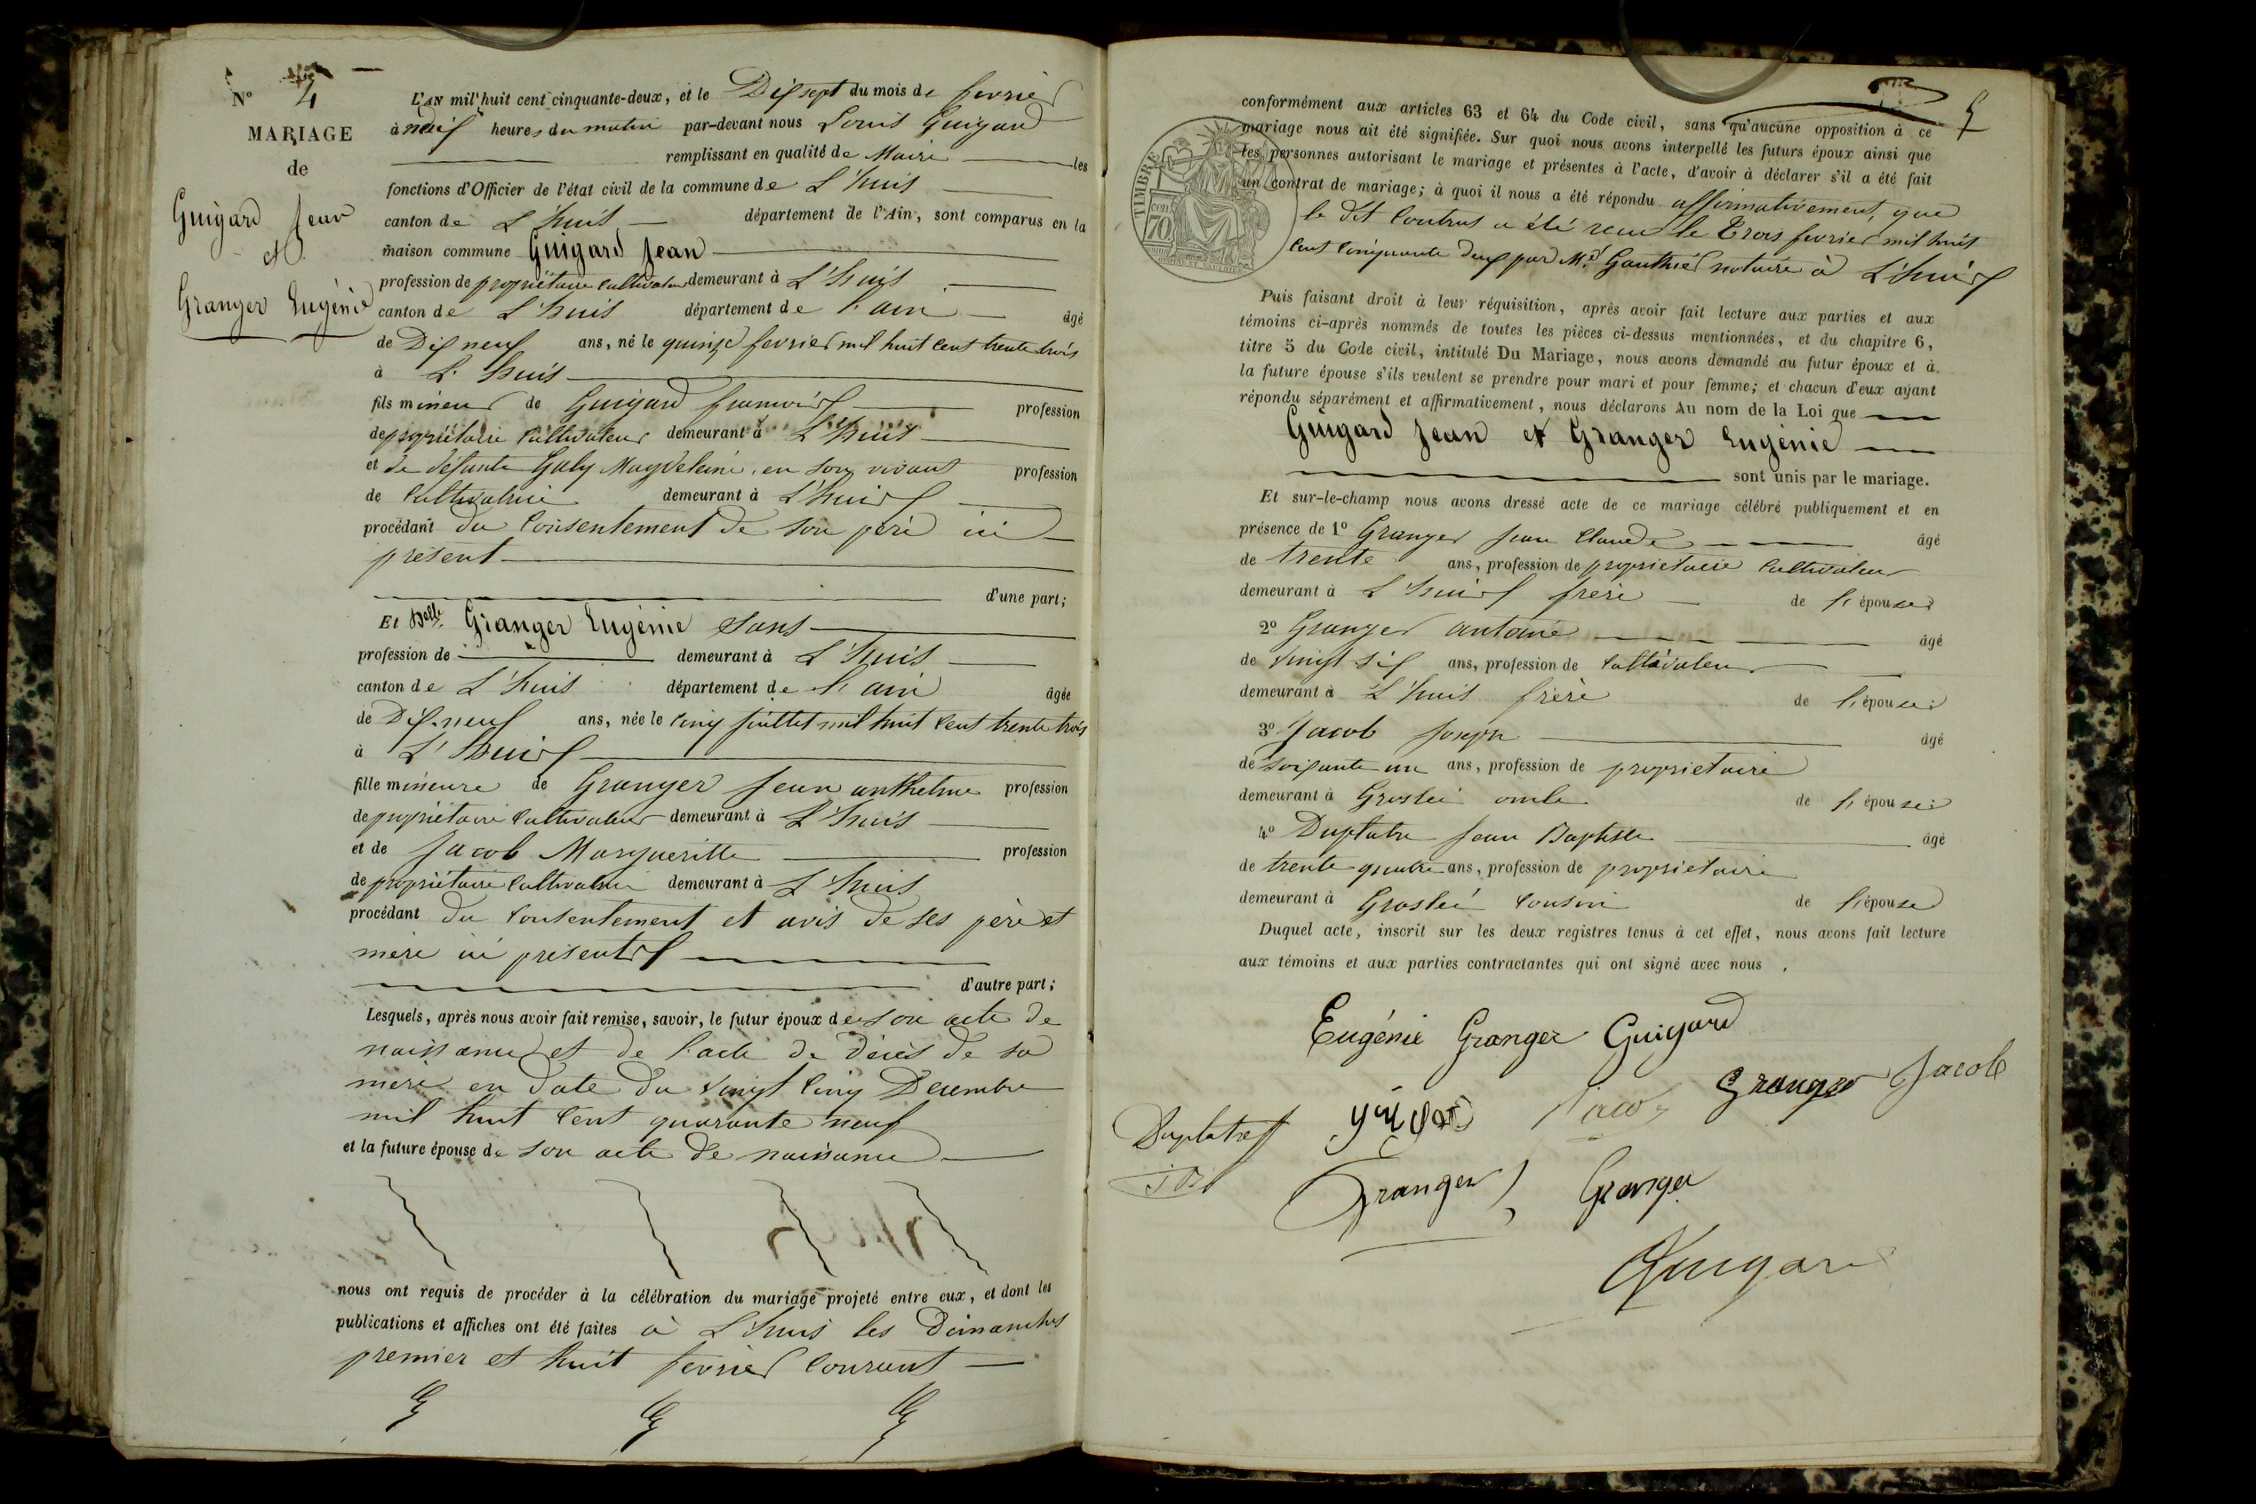 N° 4
MARIAGE
de
Guigard Jean
et
Granger Eugénie
L'AN mil huit cent cinquante-deux, et le Dix sept du mois de fevrier
à heures du matin par-devant nous Louis Guigard
remplissant en qualité de Maire les
fonctions d'Officier de l'état civil de la commune de L'huis
canton de L'huis département de l'Ain, sont comparus en la
maison commune Guigard Jean
profession de propriétaire cultivateur demeurant à L'huis
canton de L'huis département de l'ain âgé
de Dix neuf ans, né le quinze fevrier mil huit cent trente trois
à L'huis
fils mineur de Guigard françois profession
de propriétaire cultivateur demeurant à L'huis
et de défunte Galy Magdeleine, en son vivant profession
de cultivatrice demeurant à L'huis
procédant du consentement de son père ici
présent
d'une part;
Et Delle. Granger Eugénie sans
profession de demeurant à L'huis
canton de L'huis département de l'ain âgée
de Dix-neuf ans, née le cinq juillet mil huit cent trente trois
à L'huis
fille mineure de Granger Jean anthelme profession
de propriétaire cultivateur demeurant à L'huis
et de Jacob Margueritte profession
de propriétaire cultivatrice demeurant à L'huis
procédant du consentement et avis de ses père et
mère ici présents
d'autre part;
Lesquels, après nous avoir fait remise, savoir, le futur époux de son acte de
naissance et de l'acte de décès de sa
mère en date du vingt cinq Décembre
mil huit cent quarante neuf
et la future épouse de son acte de naissance
nous ont requis de procéder à la célébration du mariage projeté entre eux, et dont les
publications et affiches ont été faites à L'huis les Dimanches
premier et huit fevrier courant
5
conformément aux articles 63 et 64 du Code civil, sans qu'aucune opposition à ce
mariage nous ait été signifiée. Sur quoi nous avons interpellé les futurs époux ainsi que
les personnes autorisant le mariage et présentes à l'acte, d'avoir à déclarer s'il a été fait
un contrat de mariage; à quoi il nous a été répondu affirmativement, que
le dit Contrat a été reçu le Trois fevrier mil huit
cent cinquante deux par Me Gauthier notaire à L'huis
TIMBRE
cen
70
Puis faisant droit à leur réquisition, après avoir fait lecture aux parties et aux
témoins ci-après nommés de toutes les pièces ci-dessus mentionnées, et du chapitre 6,
titre 5 du Code civil, intitulé Du Mariage, nous avons demandé au futur époux et à
la future épouse s'ils veulent se prendre pour mari et pour femme; et chacun d'eux ayant
répondu séparément et affirmativement, nous déclarons Au nom de la Loi que
Guigard Jean et Granger Eugénie
sont unis par le mariage.
Et sur-le-champ nous avons dressé acte de ce mariage célébré publiquement et en
présence de 1° Granger Jean Claude âgé
de trente ans, profession de proprietaire cultivateur
demeurant à L'huis frère de l'épouse;
2° Granger antoine âgé
de vingt six ans, profession de cultivateur
demeurant à L'huis frère de l'épouse;
3° Jacob Joseph âgé
de soixante un ans, profession de proprietaire
demeurant à Groslée oncle de l'épouse;
4° Duplatre Jean Baptiste âgé
de trente quatre ans, profession de proprietaire
demeurant à Groslée cousin de l'épouse
Duquel acte, inscrit sur les deux registres tenus à cet effet, nous avons fait lecture
aux témoins et aux parties contractantes qui ont signé avec nous.
Eugénie Granger Guigard
Granger Jacob
Duplatre
Granger Granger
Guigard